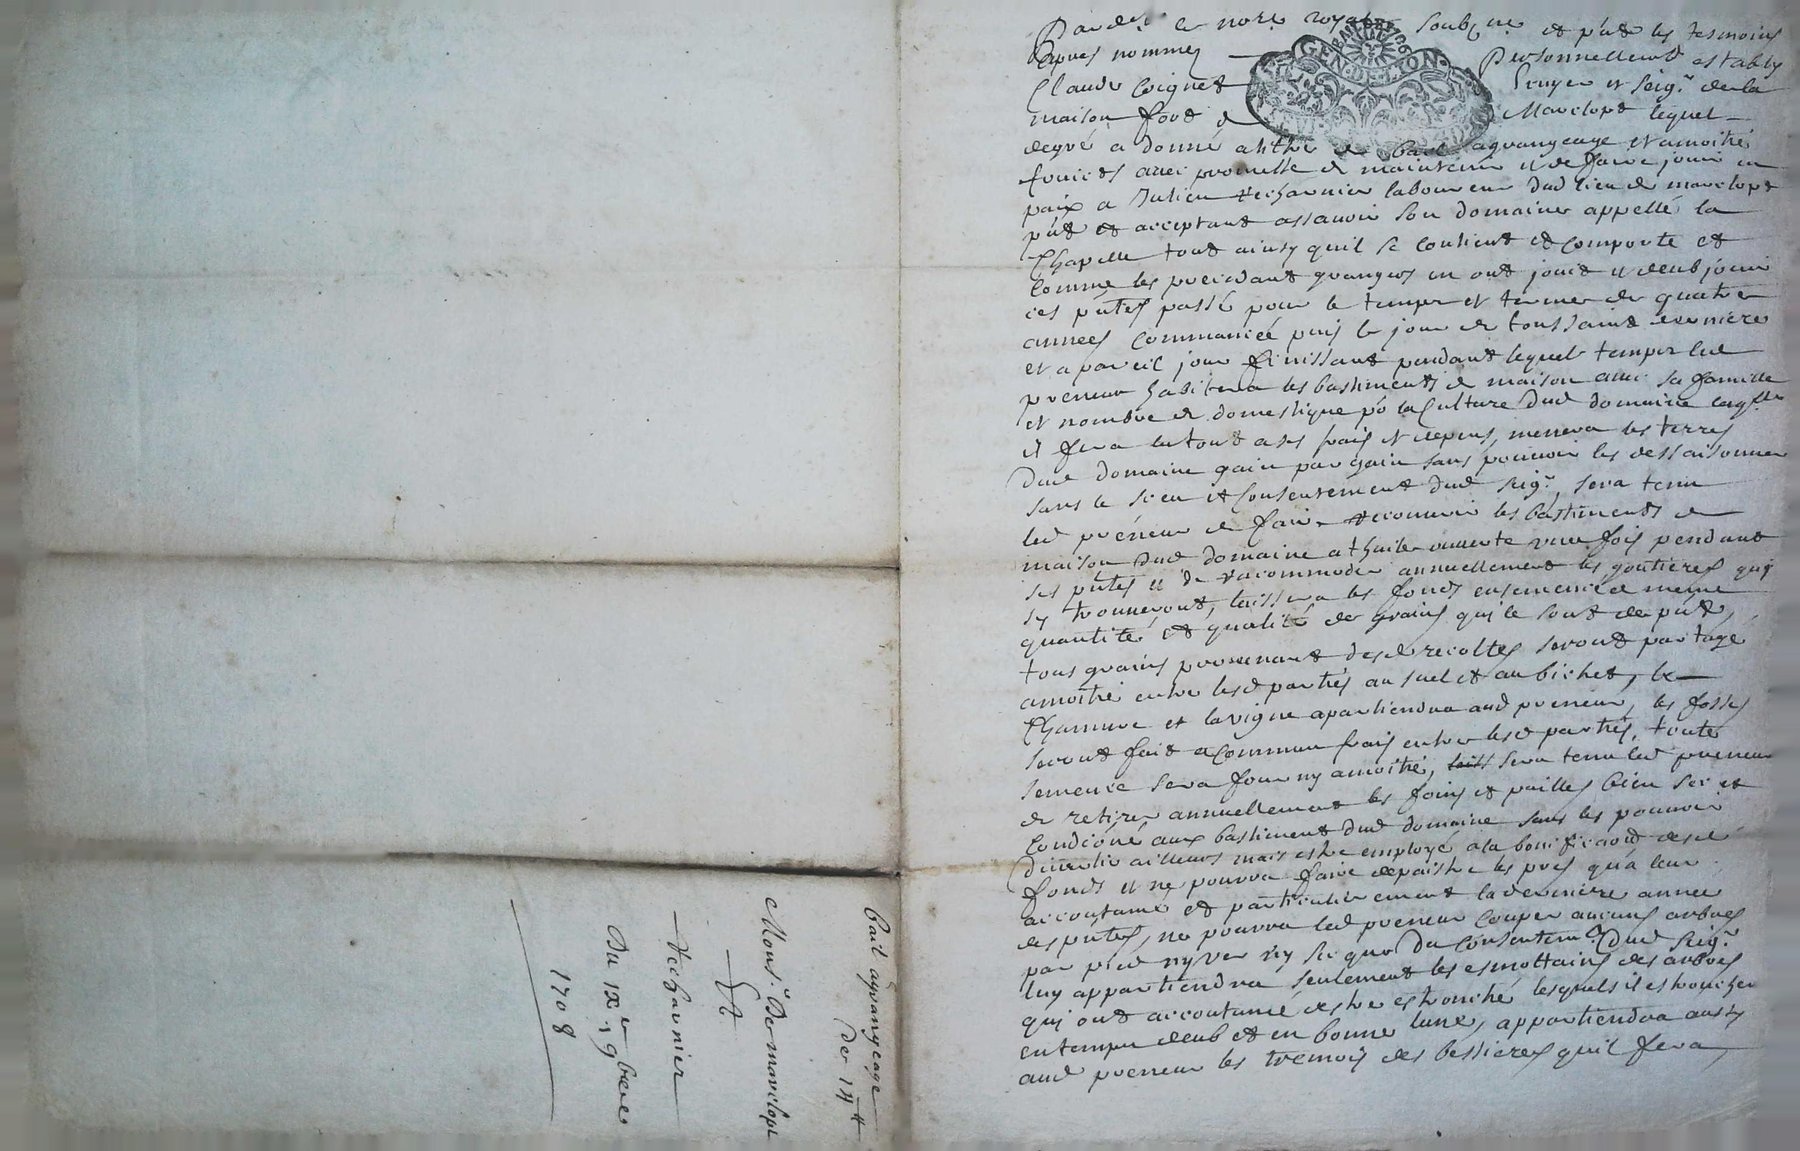 Pardt le nore royal soubsne et pñts les tesmoins
apres nommes personnellemt estably
Claude Coignet Escuyer et seigr de la
maison fort de Marclopt lequel
degré a donné a tiltre de bail a grangeage et amoitié
fruicts avec promesse de maintenir et de faire jouir en
paix a Julien decharnier laboureur dud lieu de marclopt
pñt et acceptant assavoir son domaine appellé la
Chapelle tout ainsy quil se contient et comporte et
comme les precedant grangers en ont jouit et deub jouir
ces pñtes passé pour le temps et terme de quatre
annees commancée puis le jour de toussaint derniere
et a pareil jour finissant pendant lequel temps led
preneur habitera les bastiments et maison avec sa famille
et nombre de domestique po la culture dud domaine laqlle
il fera le tout a ses frais et depens, menera les terres
dud domaine gain par gain sans pouvoir les dessaisonner
sans le sceu et consentement dud seigr, sera tenu
led preneur de faire recouvrir les bastiments et
maison dud domaine a thuile une fois pendant
ses pñtes et de racommoder annuellement les goutieres quy
sy trouveront, laissera les fonds ensemencé de meme
quantité et qualité de grains quy le sont de pñt,
tous grains provenant desd recoltes seront partagé
amoitié entre lesd parties au suel et au bichet, le
Chanvre et la vigne apartiendra aud preneur, les fosses
seront fait a commun frais entre lesd parties, toute
semence sera fourny amoitié, sera tenu led preneur
de retirer annuellement les foins et pailles bien sec et
condicioné aux bastiment dud domaine sans les pouvoir
divertir ailleurs mais estre employé a la bonificaõn desd
fonds et ne pourra faire depaistre les pres qu'a leur
accoutumé et particulierement la derniere annee
des pñtes, ne pourra led preneur couper aucuns arbres
par pied ny ver ny sec que du consentemt dud seigr
luy appartiendra seulement les esmottains des arbres
qui ont accoutumé destre estronché lesquels il estronchera
en temps deub et en bonne lune, appartiendra aussy
aud preneur les tremois des bessieres quil fera
bail agrangeage
de 14 #
Monsr De marclopt
Et
decharnier
Du ixe 9bre
1708
GEN·DE·LYON